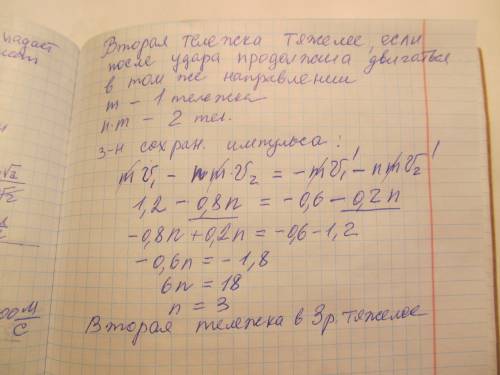 падает
Вторая тележка тяжелее, если
после удара продолжила двигаться
в том же направлении
m – 1 тележка
n·m – 2 тел.
з-н сохран. импульса:
mV₁ – nm·V₂ = –mV₁' – nmV₂'
1,2 – 0,8n = –0,6 – 0,2n
–0,8n + 0,2n = –0,6 – 1,2
–0,6n = –1,8
6n = 18
n = 3
Вторая тележка в 3 р. тяжелее
√2
м
с